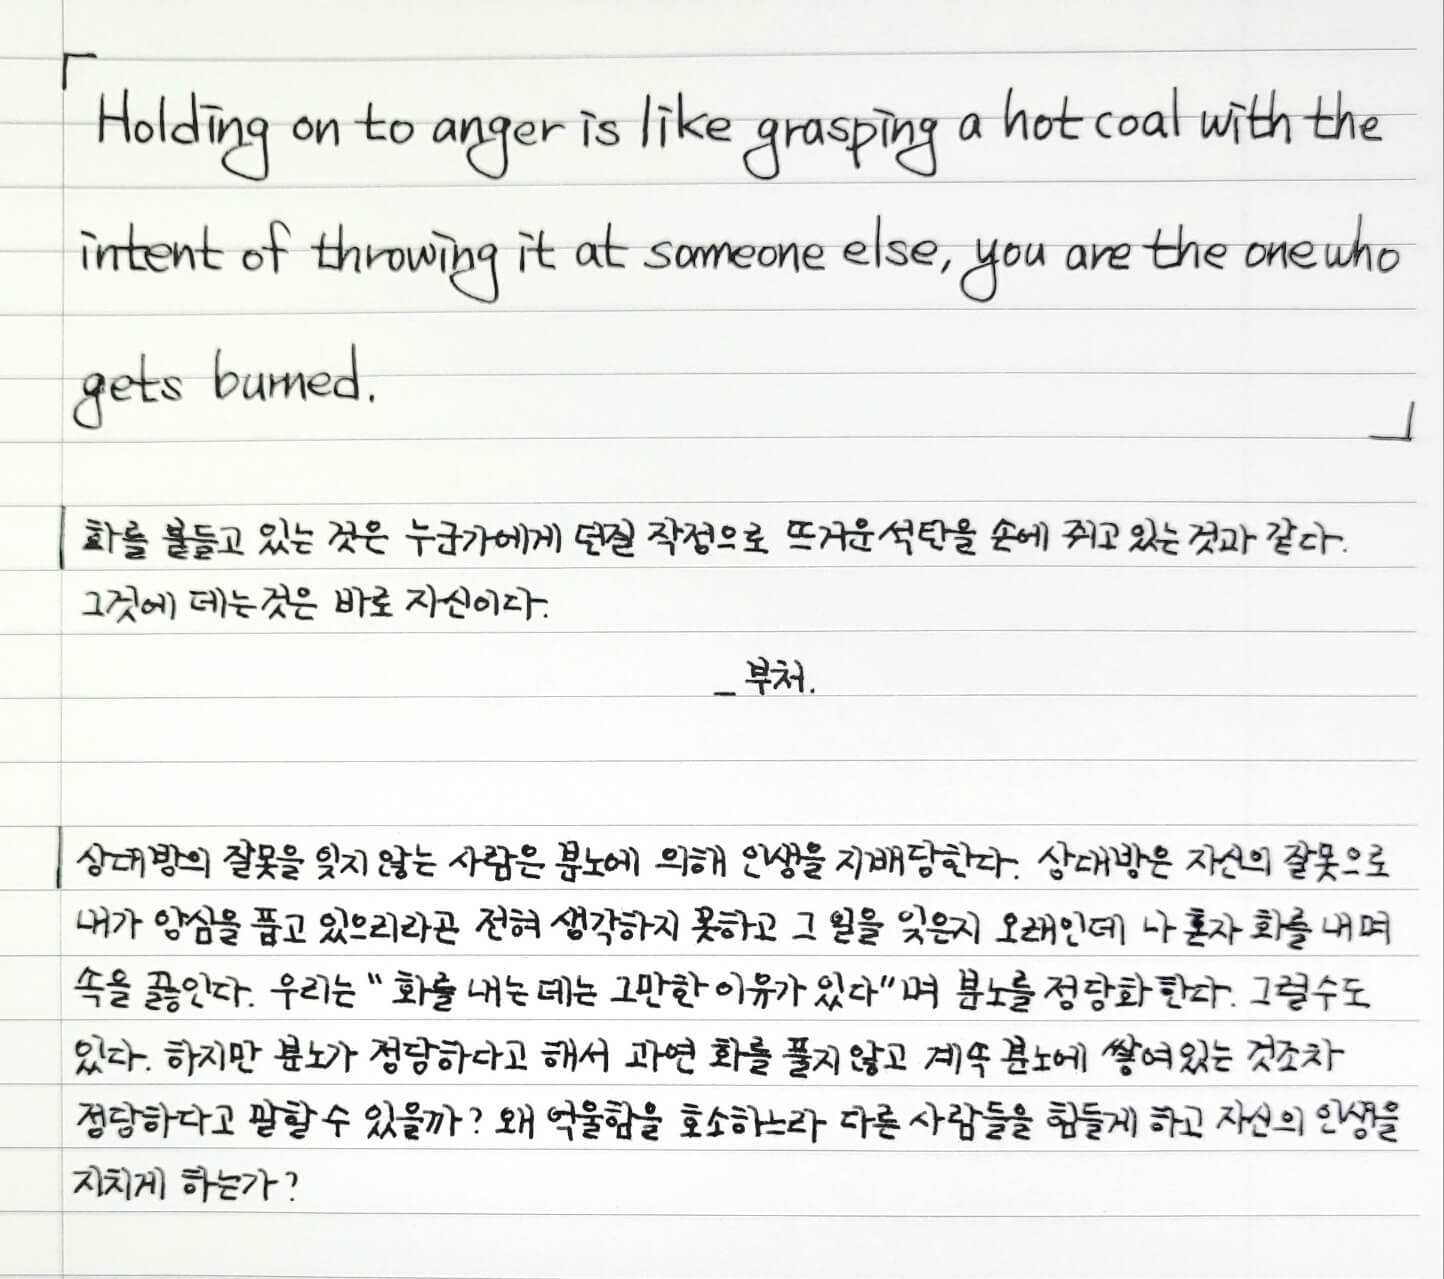 「Holding on to anger is like grasping a hot coal with the
intent of throwing it at someone else, you are the one who
gets burned.」
화를 붙들고 있는 것은 누군가에게 던질 작정으로 뜨거운 석탄을 손에 쥐고 있는 것과 같다.
그것에 데는 것은 바로 자신이다.
_ 부처.
상대방의 잘못을 잊지 않는 사람은 분노에 의해 인생을 지배당한다. 상대방은 자신의 잘못으로
내가 앙심을 품고 있으리라곤 전혀 생각하지 못하고 그 일을 잊은지 오래인데 나 혼자 화를 내며
속을 끓인다. 우리는 “화를 내는 데는 그만한 이유가 있다”며 분노를 정당화 한다. 그럴수도
있다. 하지만 분노가 정당하다고 해서 과연 화를 풀지 않고 계속 분노에 쌓여있는 것조차
정당하다고 말할 수 있을까? 왜 억울함을 호소하느라 다른 사람들을 힘들게 하고 자신의 인생을
지치게 하는가?